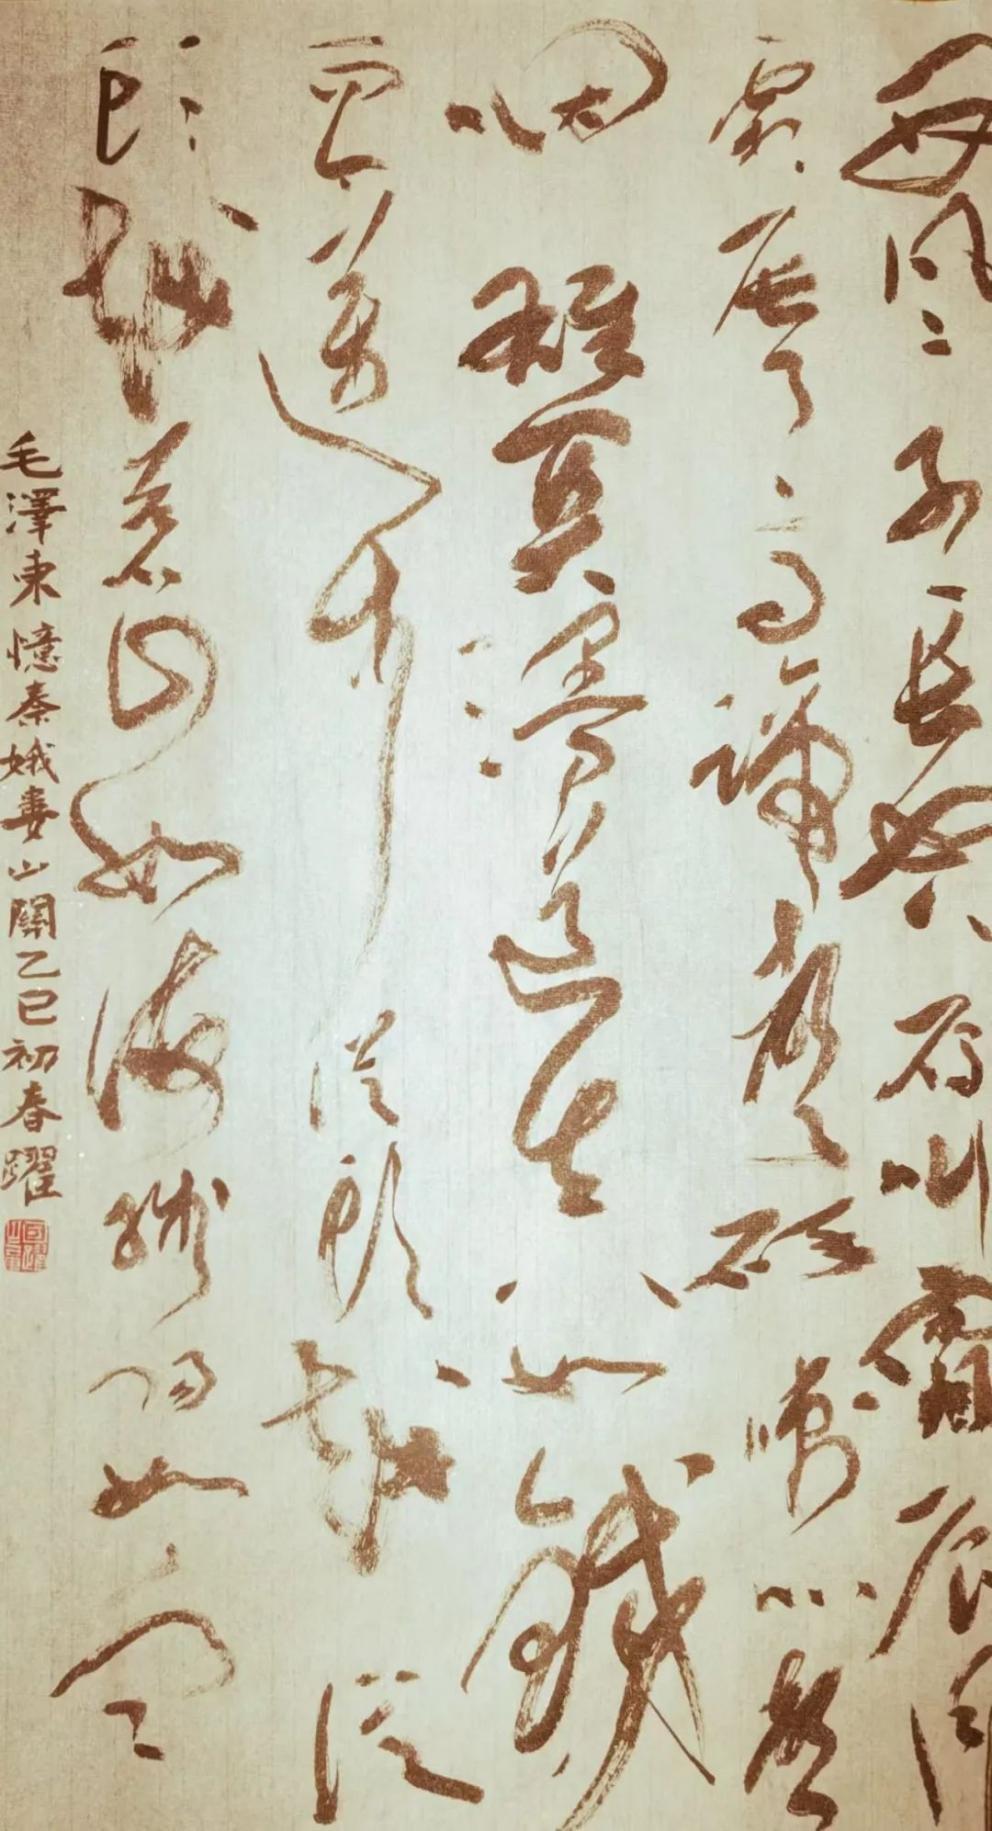 西風烈長空雁叫霜晨月
霜晨月馬蹄聲碎喇叭聲
咽雄關漫道真如鐵
而今邁步從頭越從
頭越蒼山如海殘陽如血
毛澤東憶秦娥婁山關乙巳初春躍